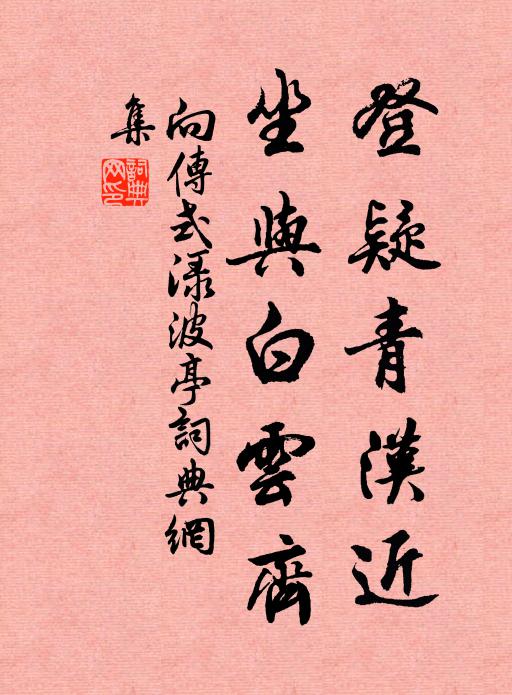 登疑青漢近
坐與白雲齊
向傳式渌波亭詞典網
集
詞典
网印